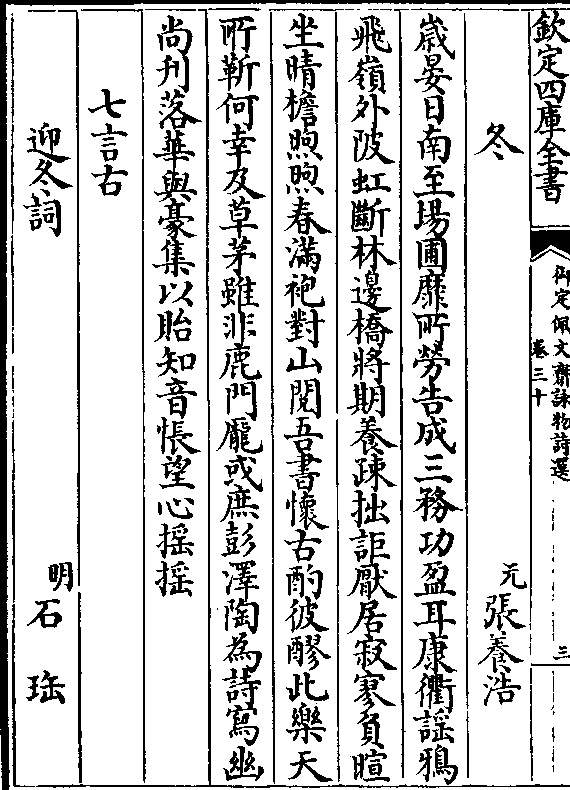 欽定四庫全書
御定佩文齋詠物詩選
卷三十
三
冬
元
張養浩
歲晏日南至場圃靡所勞告成三務功盈耳康衢謡鴉
飛嶺外陂虹斷林邊橋將期養疎拙詎厭居寂寥負暄
坐晴檐煦煦春滿袍對山閲吾書懷古酌彼醪此樂天
所靳何幸及草茅雖非鹿門龎或庶彭澤陶為詩寫幽
尚刋落華與豪集以貽知音悵望心摇摇
七言古
迎冬詞
明
石珤